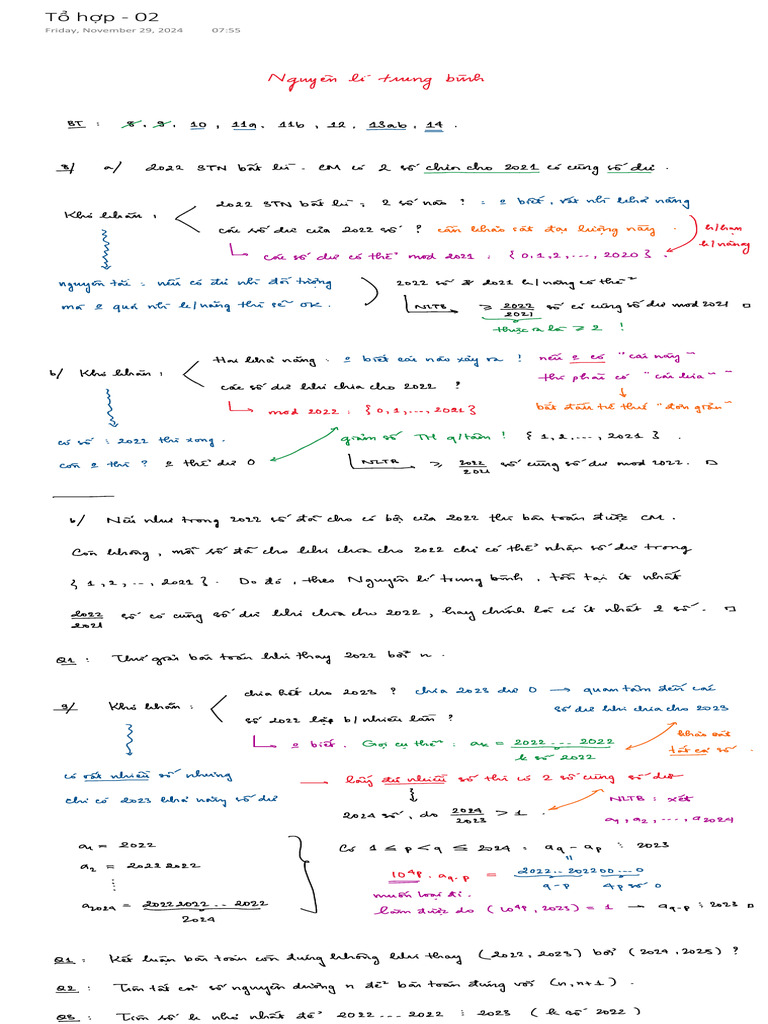 Tổ hợp - 02
Friday, November 29, 2024 07:55
Nguyên lí trung bình
BT : 8, 9, 10, 11a, 11b, 12, 13ab, 14.
8/ a/ 2022 STN bất kì. CM có 2 số chia cho 2021 có cùng số dư.
Khó khăn :
2022 STN bất kì : 2 số nào ? : k biết, rất nhiều khả năng
các số dư của 2022 số ? cần khảo sát đại lượng này.
h/hạn
k/năng
các số dư có thể mod 2021 : {0,1,2,...,2020}.
nguyên tắc : nếu có đủ nhiều đối tượng
mà k quá nhiều k/năng thì sẽ OK.
2022 số & 2021 k/năng có thể
NLTB ≥ 2022/2021 số có cùng số dư mod 2021 □
thực ra là ≥ 2 !
b/ Khó khăn :
Hai khả năng : k biết cái nào xảy ra ! nếu k có "cái này"
thì phải có "cái kia"
các số dư khi chia cho 2022 ?
mod 2022 : {0,1,...,2021}
bắt đầu từ thứ "đơn giản"
có số ⋮ 2022 thì xong.
giảm số TH q/tâm ! {1,2,...,2021}.
còn k thì ? k thể dư 0
NLTB ≥ 2022/2021 số cùng số dư mod 2022. □
b/ Nếu như trong 2022 số đã cho có bội của 2022 thì bài toán được CM.
Còn không, mỗi số đã cho khi chia cho 2022 chỉ có thể nhận số dư trong
{1,2,...,2021}. Do đó, theo Nguyên lí trung bình, tồn tại ít nhất
2022/2021 số có cùng số dư khi chia cho 2022, hay chính là có ít nhất 2 số. □
Q1 : Thử giải bài toán khi thay 2022 bởi n.
9/ Khó khăn :
chia hết cho 2023 ? chia 2023 dư 0 → quan tâm đến các
số dư khi chia cho 2023
số 2022 lặp b/nhiêu lần ?
k biết. Gọi cụ thể : aₖ = 2022...2022
k số 2022
khảo sát
tất cả số.
có rất nhiều số nhưng
chỉ có 2023 khả năng số dư
lấy đủ nhiều số thì có 2 số cùng số dư
2024 số, do 2024/2023 > 1.
NLTB : xét
a₁, a₂, ..., a₂₀₂₄
a₁ = 2022
a₂ = 20222022
⋮
a₂₀₂₄ = 20222022...2022
2024
Có 1 ≤ p < q ≤ 2024 : a_q - a_p ⋮ 2023
=
10^4p . a_q-p = 2022...202200...0
q-p 4p số 0
muốn loại đi.
làm được do (10^4p, 2023) = 1 → a_q-p ⋮ 2023 □
Q1 : Kết luận bài toán còn đúng không khi thay (2022, 2023) bởi (2024, 2025) ?
Q2 : Tìm tất cả số nguyên dương n để bài toán đúng với (n, n+1).
Q3 : Tìm số k nhỏ nhất để 2022...2022 ⋮ 2023 (k số 2022)